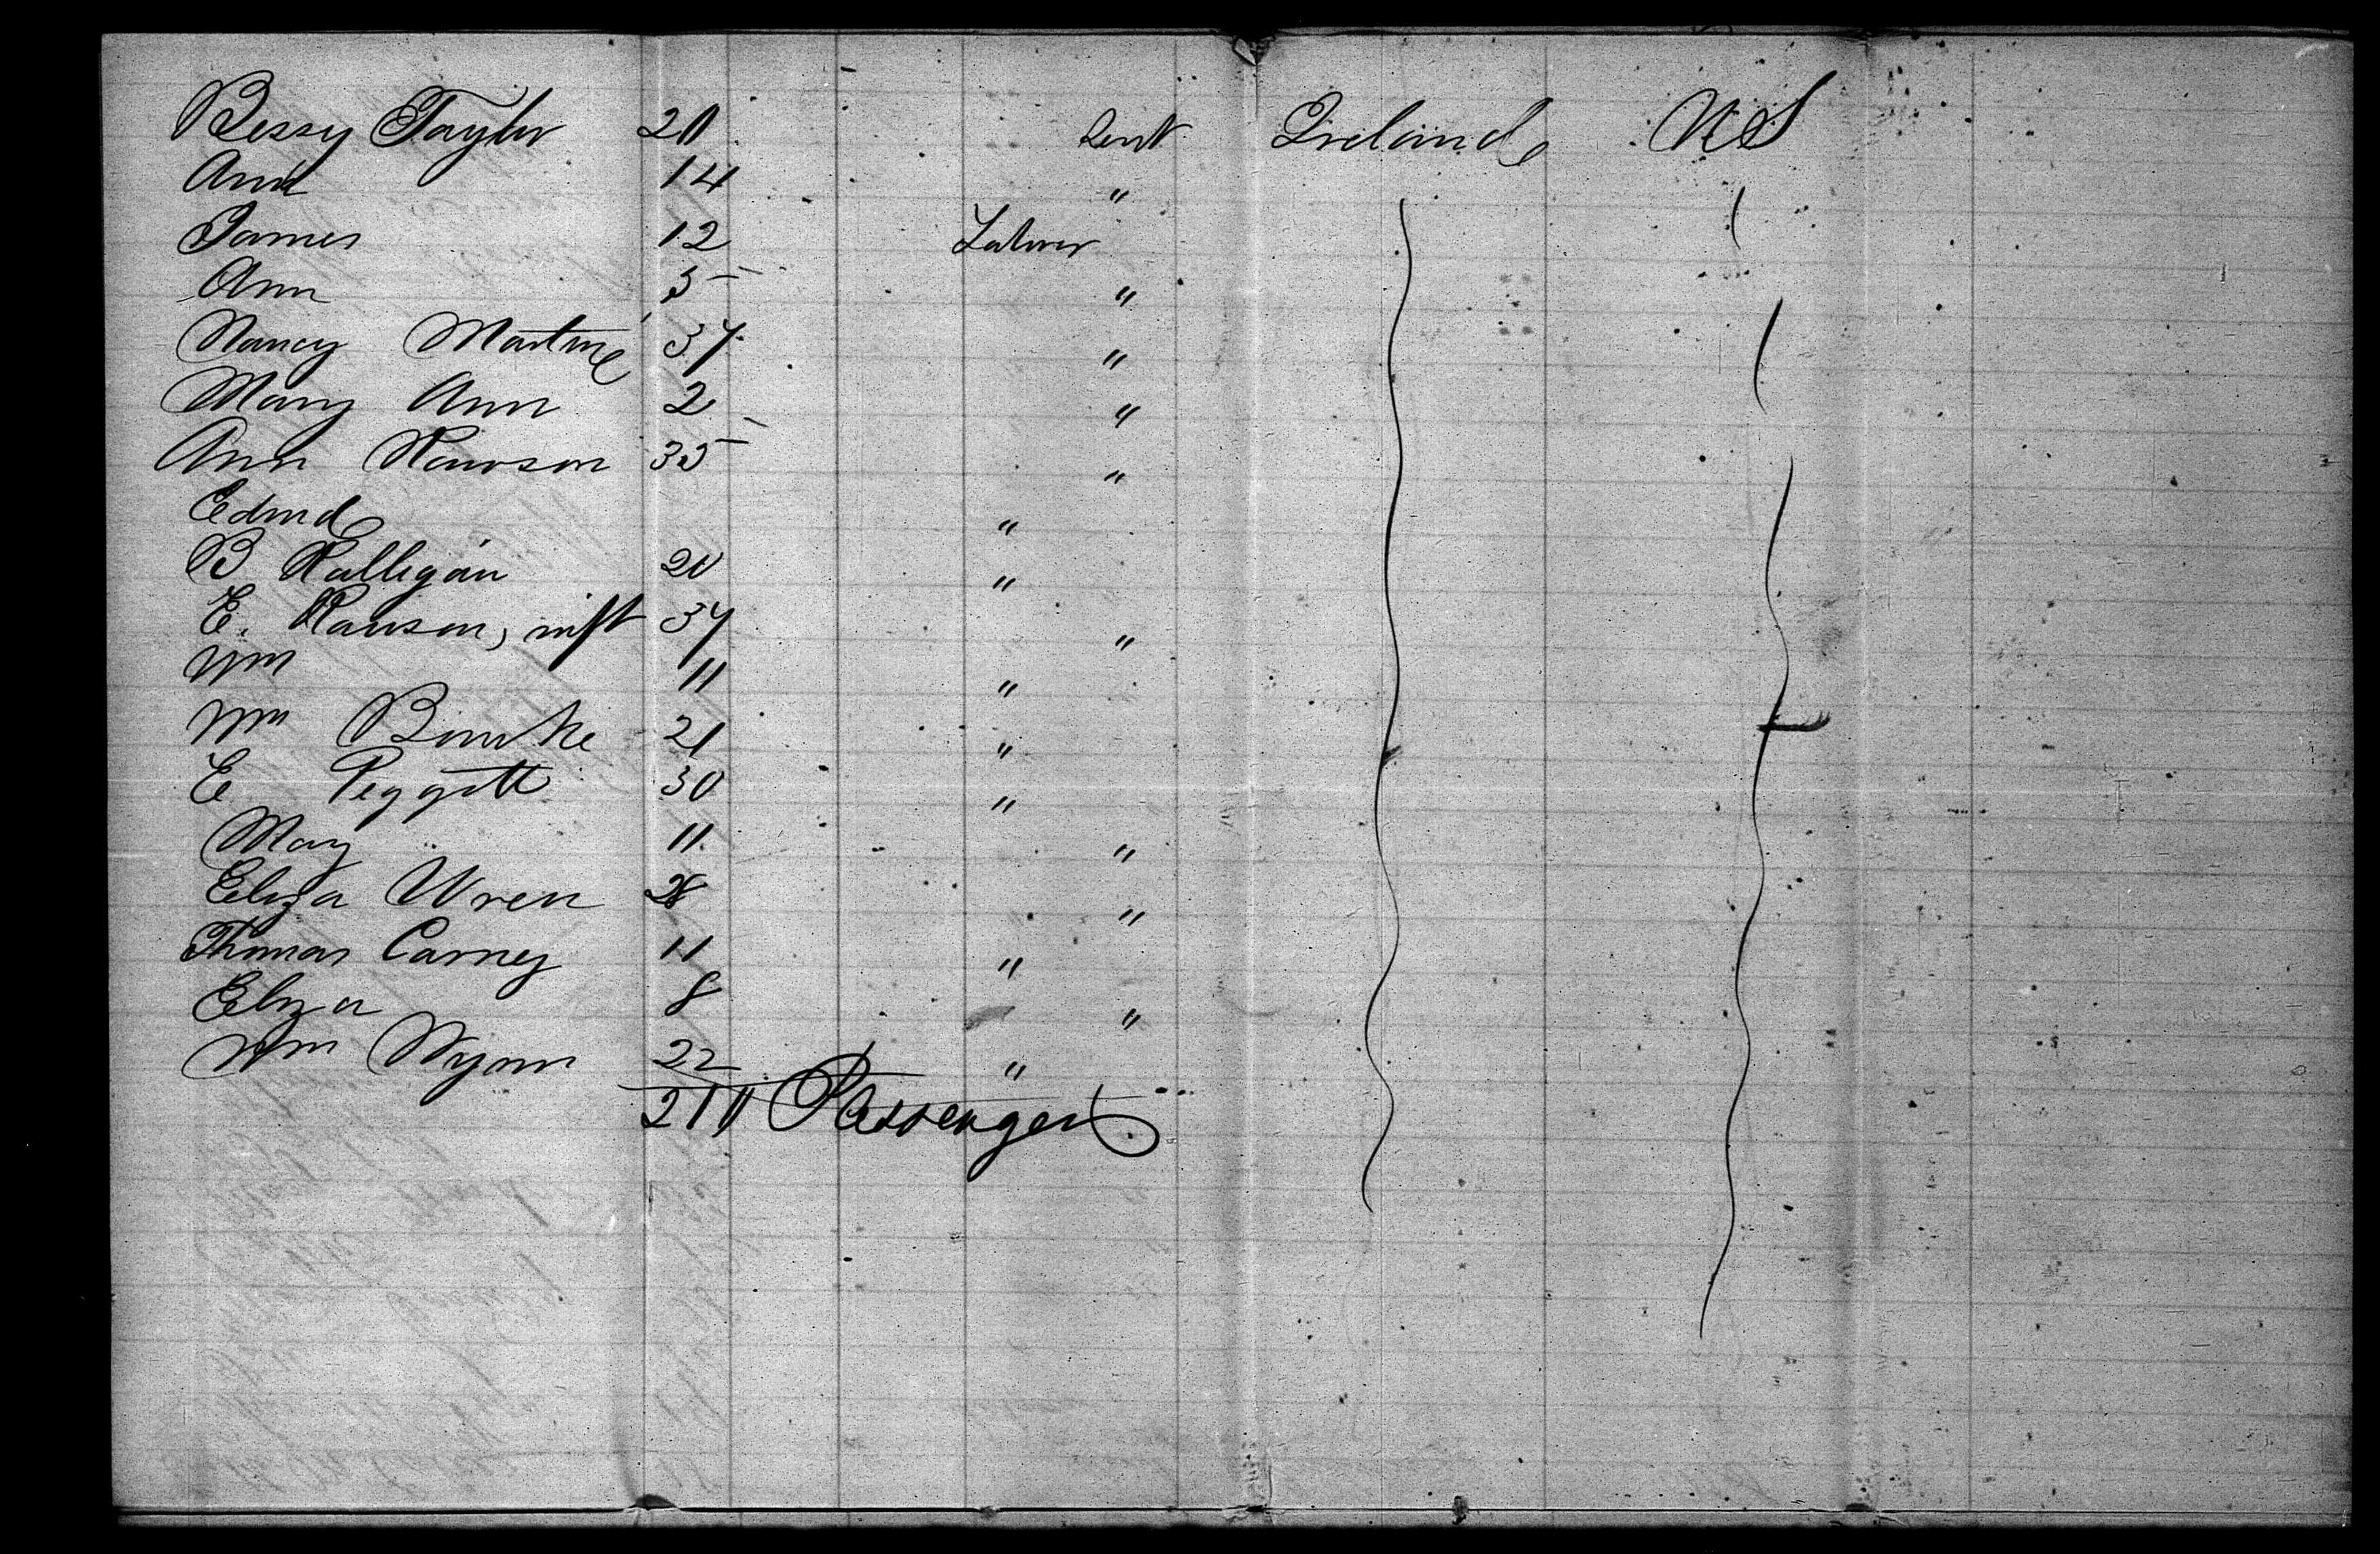 Bessy Taylor 20 Servt Ireland US
Ann 14 "
James 12 Labour
Ann 5 "
Nancy Martin 37 "
Mary Ann 2 "
Ann Rawson 35 "
Edmd "
B Halligan 20 "
E. Rawson, inft 37 "
Wm 11 "
Wm Bourke 21 "
E Peggott 30 "
May 11 "
Eliza Wren 28 "
Thomas Carney 11 "
Eliza 8 "
Wm Wynn 22 "
210 Passengers